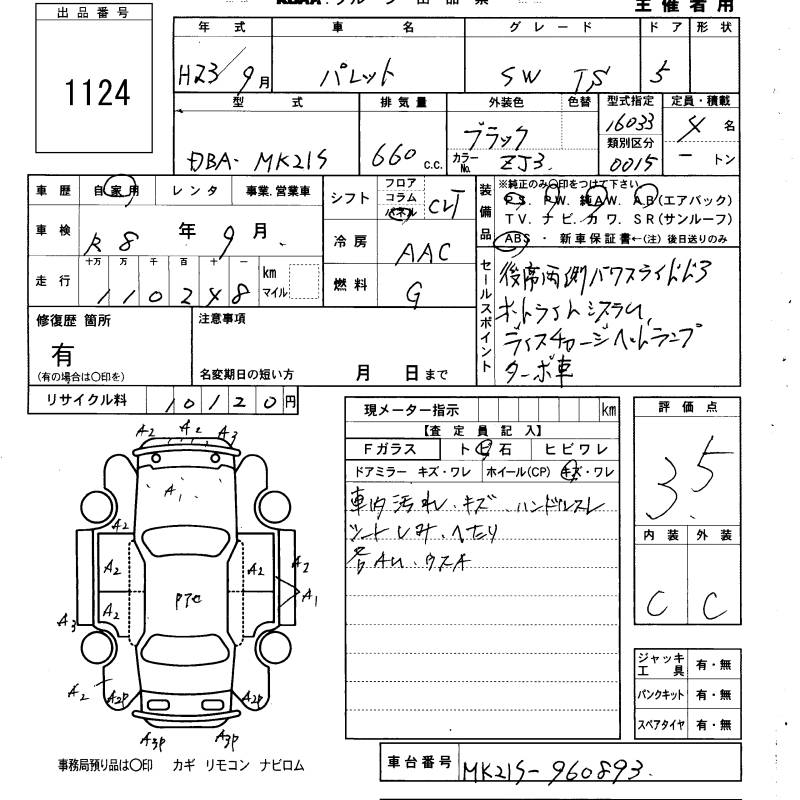 主催者用
出品番号
1124
年式 車名 グレード ドア 形状
H23/9月 パレット SW TS 5
型式 排気量 外装色 色替 型式指定 定員・積載
DBA- MK21S 660 c.c. ブラック 16033 4名
カラーNo. ZJ3 類別区分 0015 ー トン
車歴 自家用 レンタ 事業.営業車
シフト フロア コラム パネル
装備品 ※純正のみ〇印をつけて下さい
PS. PW. 純AW. AB(エアバック)
TV. ナビ. カワ. SR(サンルーフ)
ABS・新車保証書←(注)後日送りのみ
車検 R8年9月
冷房 AAC
走行 十万 万 千 百 十 一
110248 km マイル
燃料 G
セールスポイント 後席両側パワスライドドア
オートライトシステム
ディスチャージヘッドランプ
ターボ車
修復歴 箇所
有
(有の場合は〇印を)
注意事項
名変期日の短い方 月 日まで
リサイクル料 10120円
現メーター指示 km
【査定員記入】
Fガラス トビ石 ヒビワレ
ドアミラー キズ・ワレ ホイール(CP) キズ・ワレ
車内汚れ.キズ ハンドルスレ
シートしみ.へたり
各AU.ウスキ
評価点
3.5
内装 外装
C C
ジャッキ工具 有・無
パンクキット 有・無
スペアタイヤ 有・無
A2 A2 A3
A1
A2
A2 A2 A2
A2 A1
A3
P7C
A2 A2P A2P
A3P A3P
事務局預り品は〇印 カギ リモコン ナビロム
車台番号 MK21S-960893